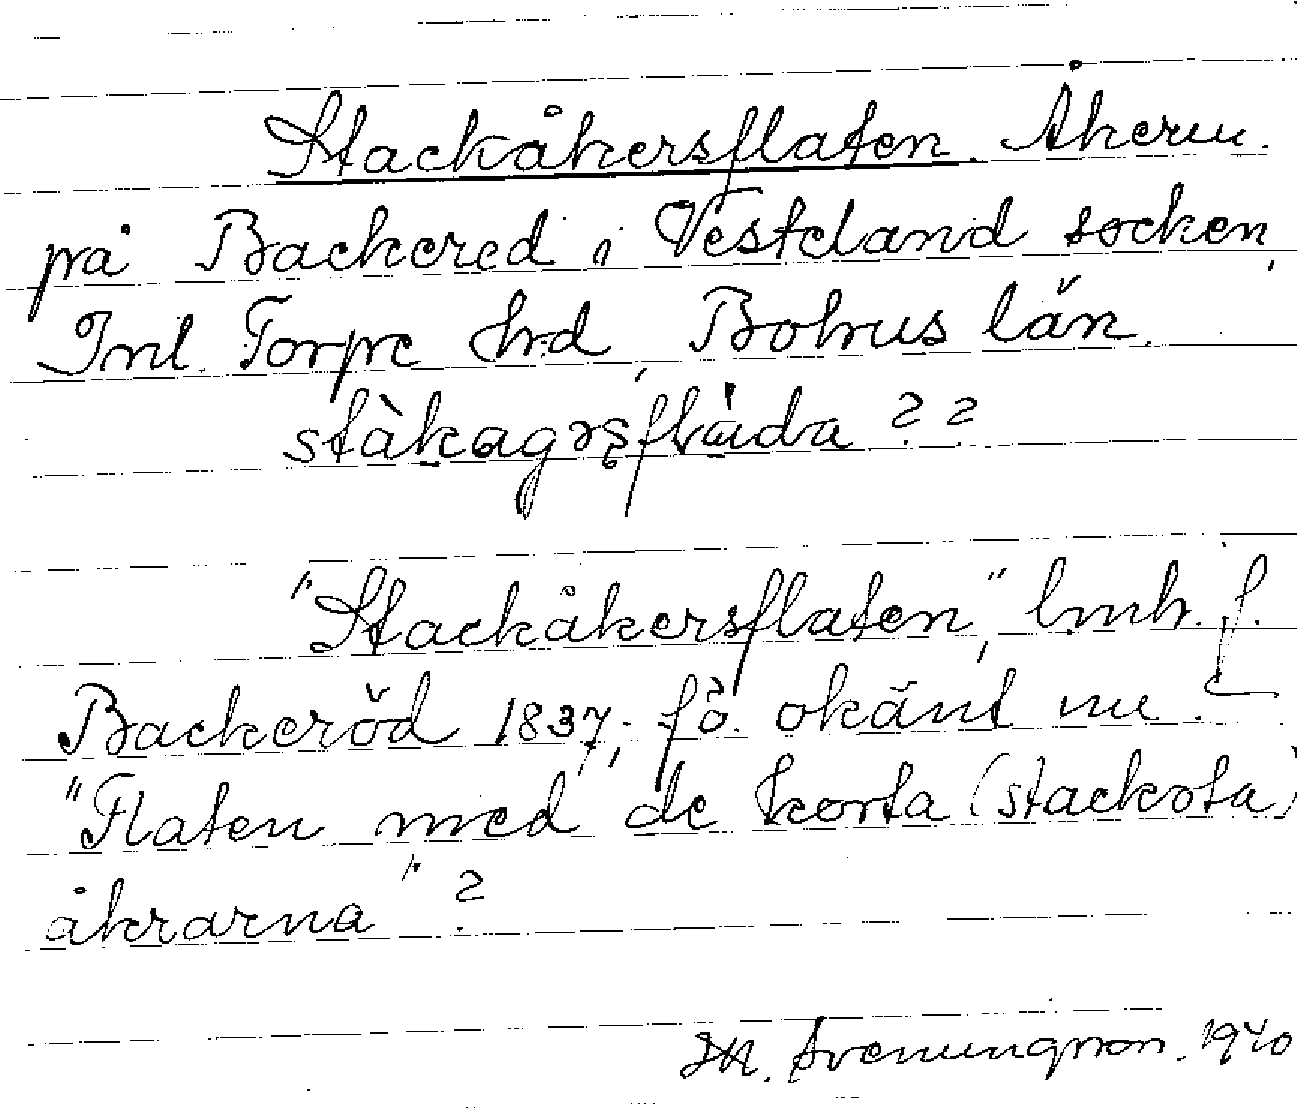 Stackåkersflaten. Åkern.
på Backered i Vesterland socken,
Inl. Torpe hrd, Bohus län.
"Stackåkersflaten", lmh. f.
Backeröd 1837; fö. okänt nu.
"Flaten med de korta (stackota)
åkrarna"?
M. Svenungson. 1940